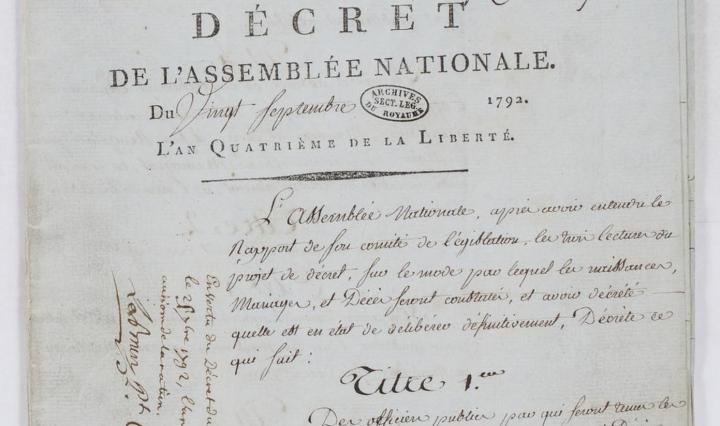 DÉCRET
DE L'ASSEMBLÉE NATIONALE.
Du Vingt Septembre 1792.
ARCHIVES
SECT. LEG.
DU ROYAUME
L'AN QUATRIÈME DE LA LIBERTÉ.
L'Assemblée Nationale, après avoir entendu le
Rapport de son comité de Législation, les trois lectures du
projet de décret, sur le mode par lequel les naissances,
Mariages, et Décès seront constatés, et avoir décrété
qu'elle est en état de délibérer définitivement, Décrète ce
qui suit :
Titre 1.er
Des officiers publics par qui seront tenus les
En vertu du Décret du
le 21 7bre 1792, l'an
au nom de la nation.